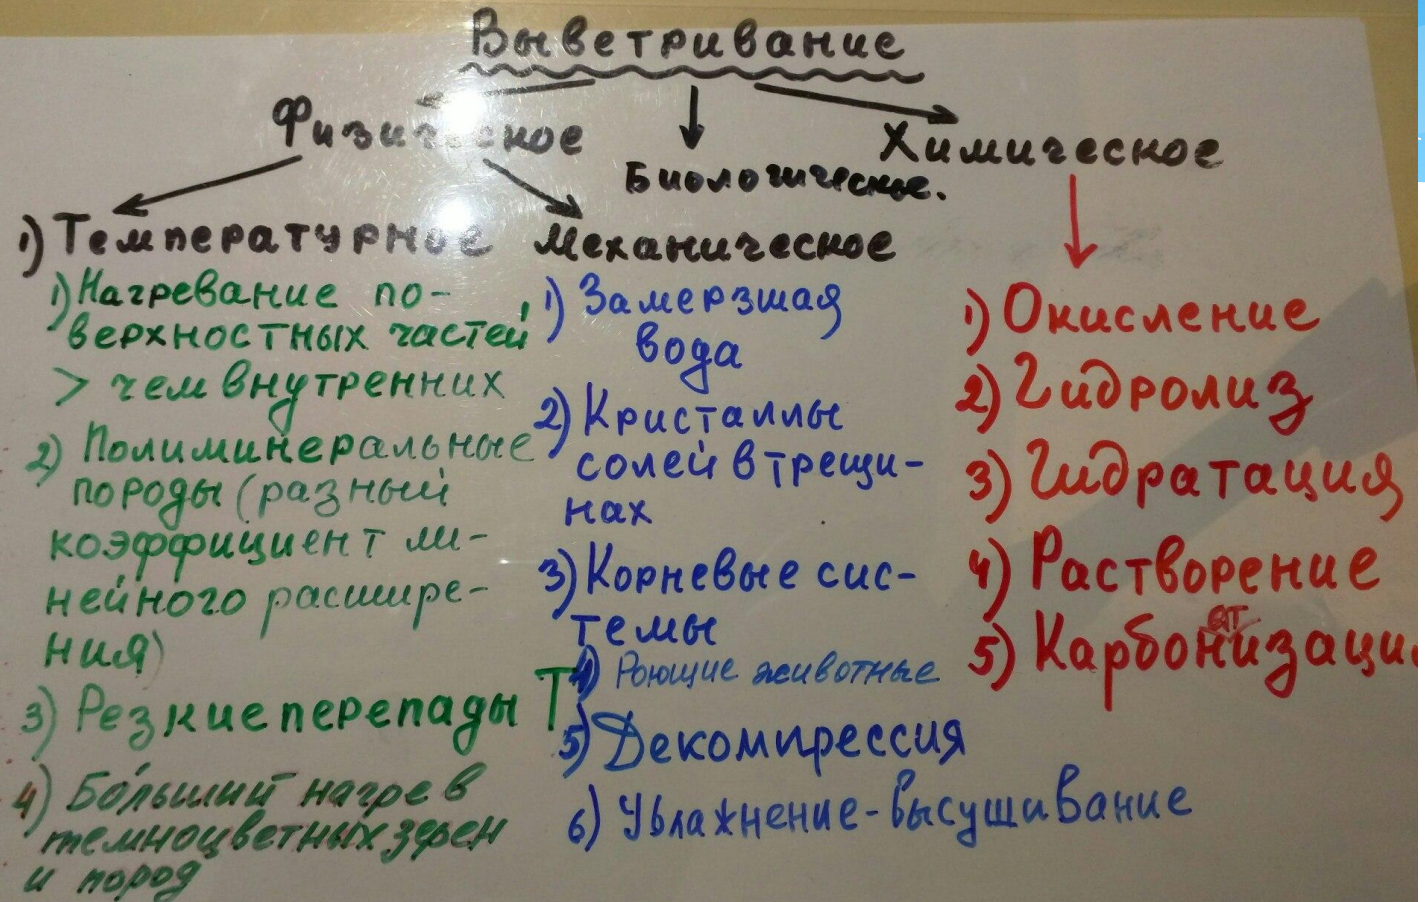 Выветривание
Физическое
Биологическое.
Химическое
1) Температурное
1) Нагревание по-
верхностных частей
> чем внутренних
2) Полиминеральные
породы (разный
коэффициент ли-
нейного расшире-
ния)
3) Резкие перепады T
4) Бо́льший нагрев
темноцветных зёрен
и пород
Механическое
1) Замерзшая
вода
2) Кристаллы
солей в трещи-
нах
3) Корневые сис-
темы
4) Роющие животные
5) Декомпрессия
6) Увлажнение-высушивание
1) Окисление
2) Гидролиз
3) Гидратация
4) Растворение
ат
5) Карбонизаци